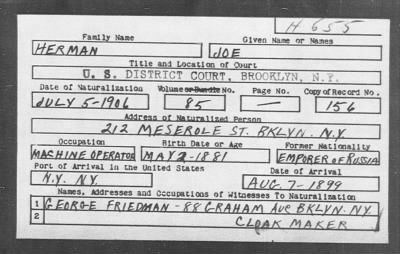 H 655
Family Name Given Name or Names
HERMAN JOE
Title and Location of Court
U. S. DISTRICT COURT, BROOKLYN, N.Y.
Date of Naturalization Volume or Bundle No. Page No. Copy of Record No.
JULY 5-1906 85 — 156
Address of Naturalized Person
212 MESEROLE ST. BKLYN. N.Y.
Occupation Birth Date or Age Former Nationality
MACHINE OPERATOR MAY 2-1881 EMPORER OF RUSSIA
Port of Arrival in the United States Date of Arrival
N.Y. N.Y. AUG. 7-1899
Names, Addresses and Occupations of Witnesses To Naturalization
1 GEORGE FRIEDMAN - 88 GRAHAM AVE BKLYN. N.Y.
2 CLOAK MAKER